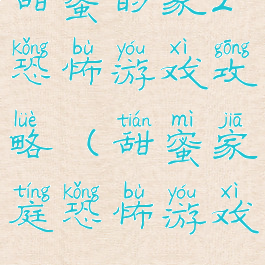 甜蜜的家2
kǒng bù yóu xì gōng
恐怖游戏攻
lüè tián mì jiā
略（甜蜜家
tíng kǒng bù yóu xì
庭恐怖游戏